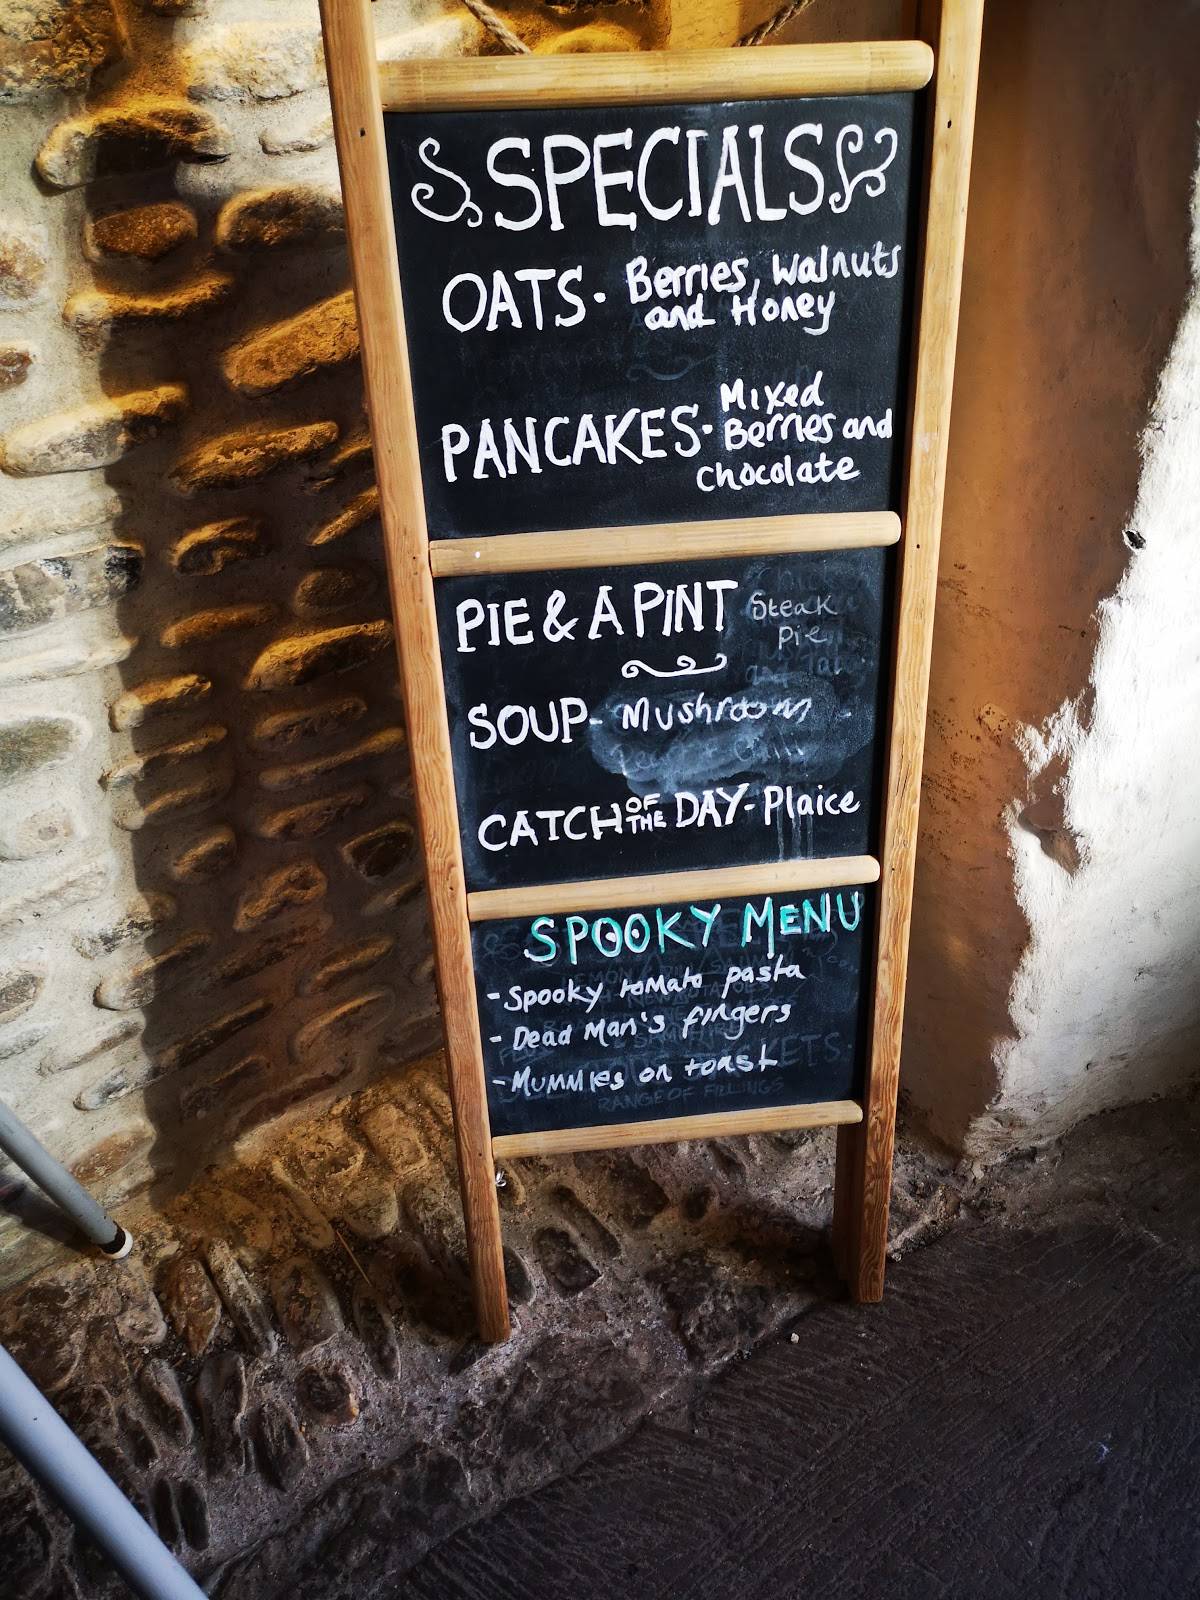 SPECIALS
OATS. Berries, Walnuts
and Honey
PANCAKES. Mixed
Berries and
Chocolate
PIE & A PINT Steak
Pie
SOUP- Mushroom
CATCH OF THE DAY- Plaice
SPOOKY MENU
- Spooky tomato pasta
- Dead Man's fingers
- Mummies on toast
RANGE OF FILLINGS